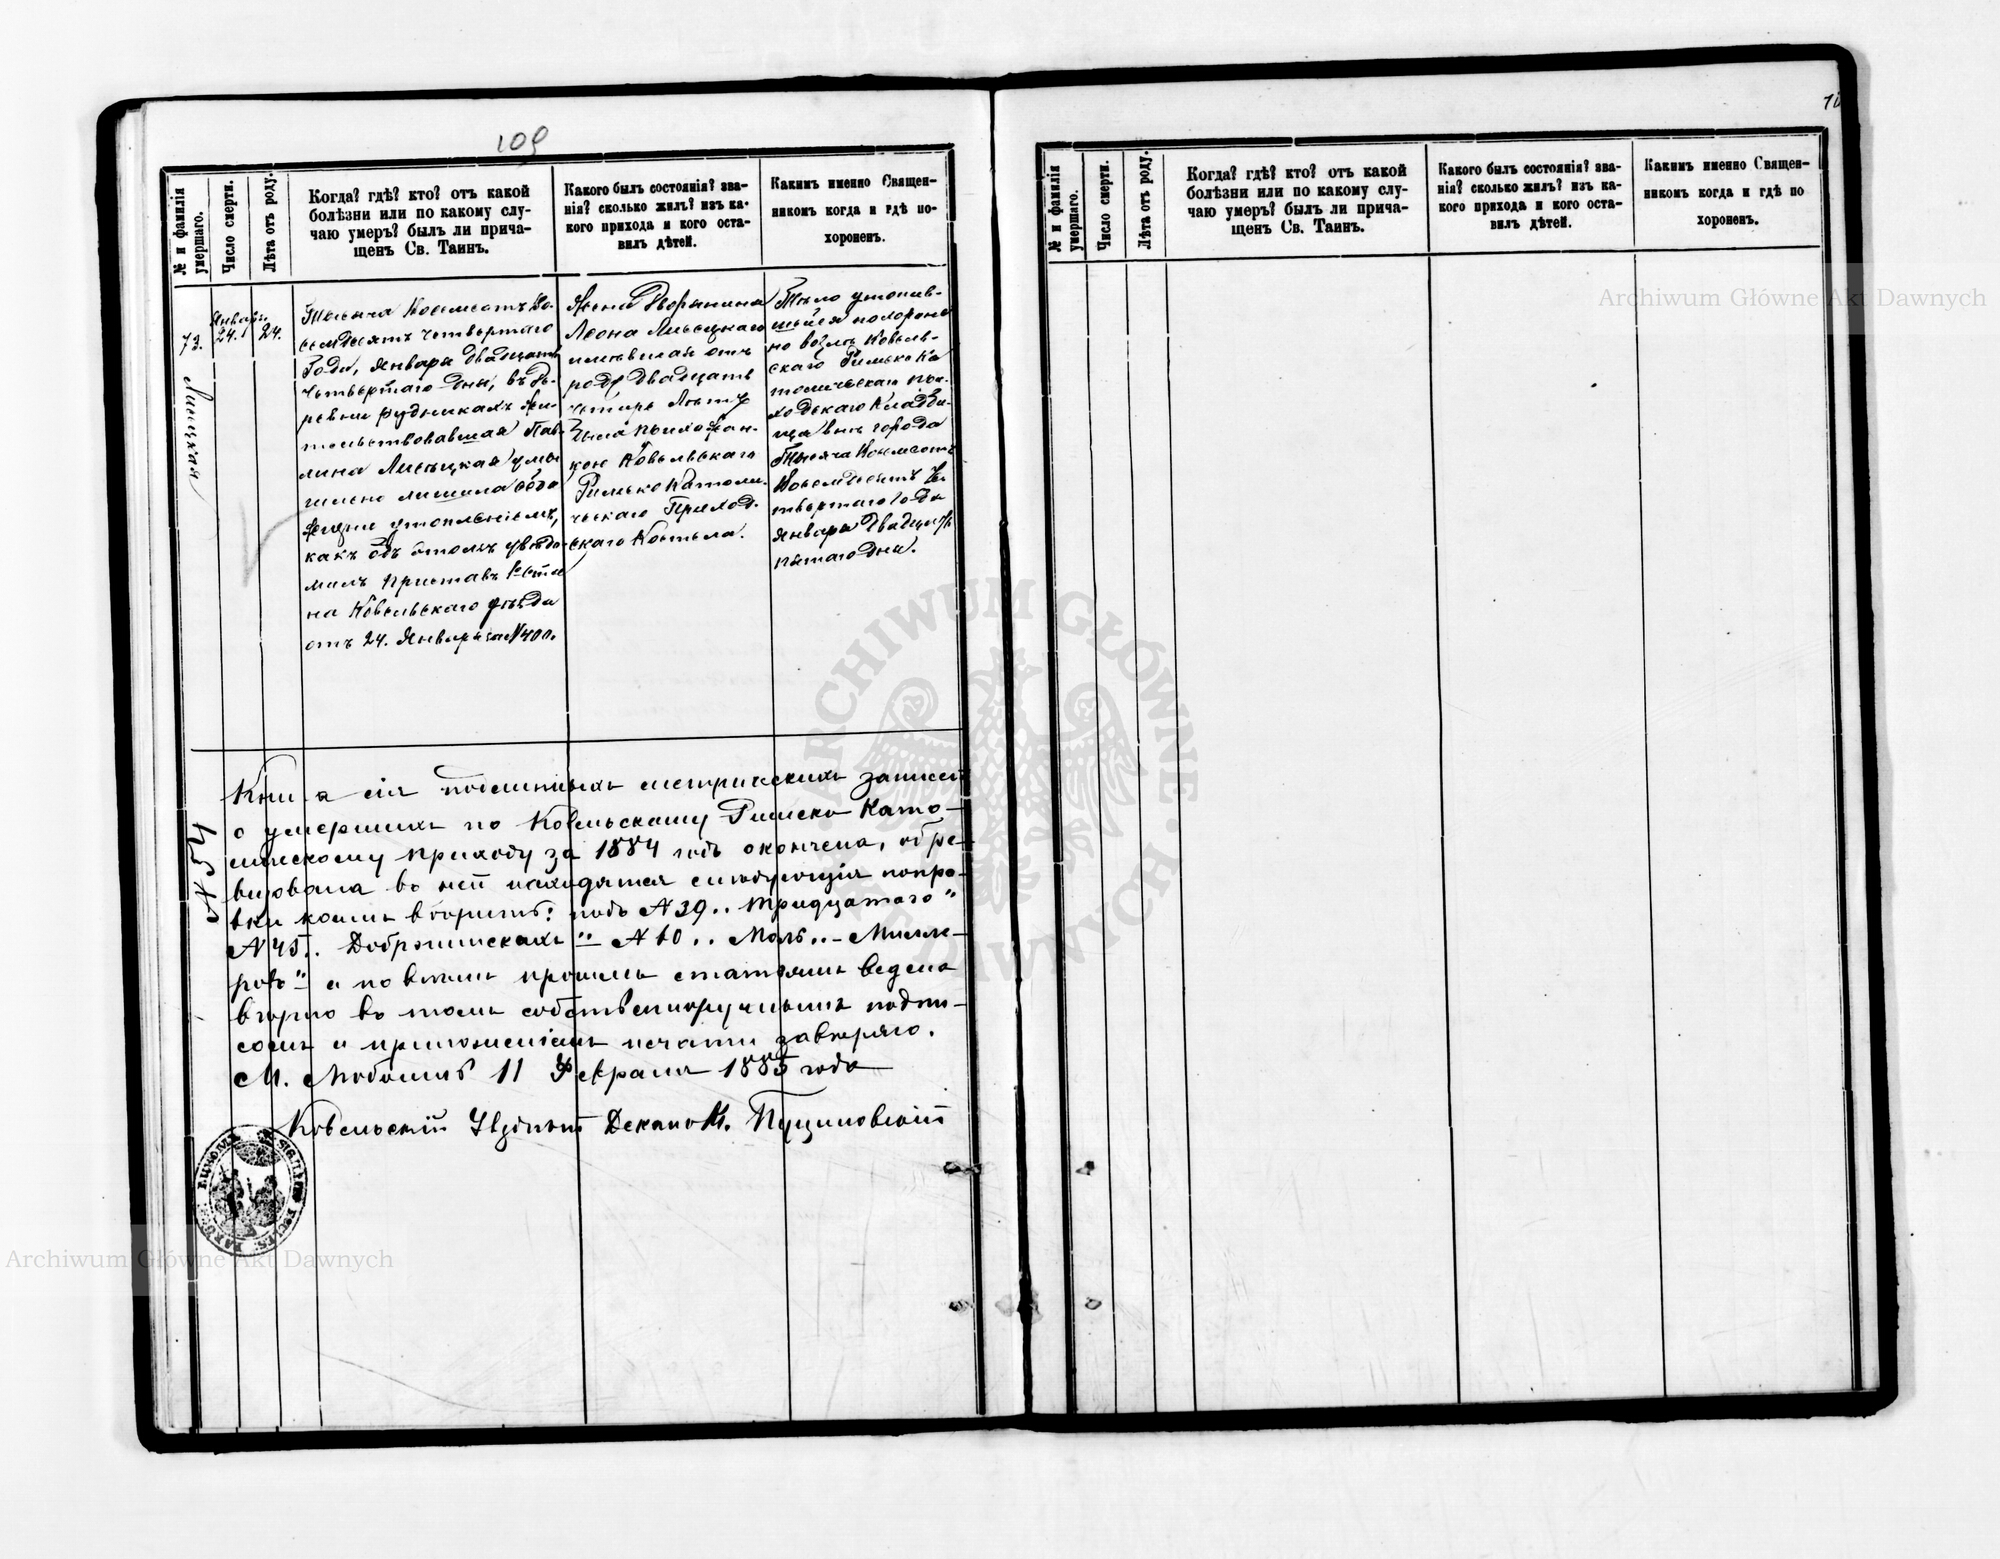 109
№ и фамилія умершаго.
Число смерти.
Лѣта отъ роду.
Когда? гдѣ? кто? отъ какой
болѣзни или по какому слу-
чаю умеръ? былъ ли прича-
щенъ Св. Таинъ.
Какого былъ состоянія? зва-
нія? сколько жилъ? изъ ка-
кого прихода и кого оста-
вилъ дѣтей.
Какимъ именно Священ-
никомъ когда и гдѣ по-
хороненъ.
73.
Лисецкая
Января
24.
24.
Тысяча Восемсотъ Во-
семдесятъ четвертаго
Года, Января двадцать
четвертаго дня, въ де-
ревни Рудникахъ жи-
тельствовавшая Пав-
лина Лисецкая умы-
шлено лишила себя
жизни утопленіемъ,
какъ объ этомъ увѣдо-
милъ Приставъ 1º Ста
на Ковельскаго уѣзда
отъ 24. Января за №400.
Жена Дворянина
Леона Лисецкаго
имѣвшая отъ
роду двадцать
четыре Лѣтъ
была прихожан-
кою Ковельскаго
Римско Католи-
ческаго Приход-
скаго Костела.
Тѣло утопив-
шейся похороне
но возлѣ Ковель-
скаго Римско Ка
толическаго При-
ходскаго Кладби-
ща внѣ города
Тысяча Восемсотъ
Восемдесятъ Че-
твертаго Года
Января двадцать
пятаго дня.
№ 54
Книга сія подлинныхъ метрическихъ записей
о умершихъ по Ковельскому Римско Като-
лическому приходу за 1884 годъ окончена, обре-
визована во ней находятся слѣдующія попра-
вки коими вѣрить: подъ №39 „ тридцатого "
№45 „ Доброшинскахъ " – № 60 „ Моль „ – Милле-
ровъ " – и по всѣмъ прочимъ статьямъ ведена
вѣрно во томъ собственоручнымъ подпи-
сомъ и приложеніемъ печати завѣряю.
М. Любомль 11 Февраля 1885 года
Ковельскій Уѣздный Деканъ К. Пуциловскій
№ и фамилія умершаго.
Число смерти.
Лѣта отъ роду.
Когда? гдѣ? кто? отъ какой
болѣзни или по какому слу-
чаю умеръ? былъ ли прича-
щенъ Св. Таинъ.
Какого былъ состоянія? зва-
нія? сколько жилъ? изъ ка-
кого прихода и кого оста-
вилъ дѣтей.
Какимъ именно Священ-
никомъ когда и гдѣ по-
хороненъ.
ARCHIWUM GŁÓWNE AKT DAWNYCH
Archiwum Główne Akt Dawnych
Archiwum Główne Akt Dawnych